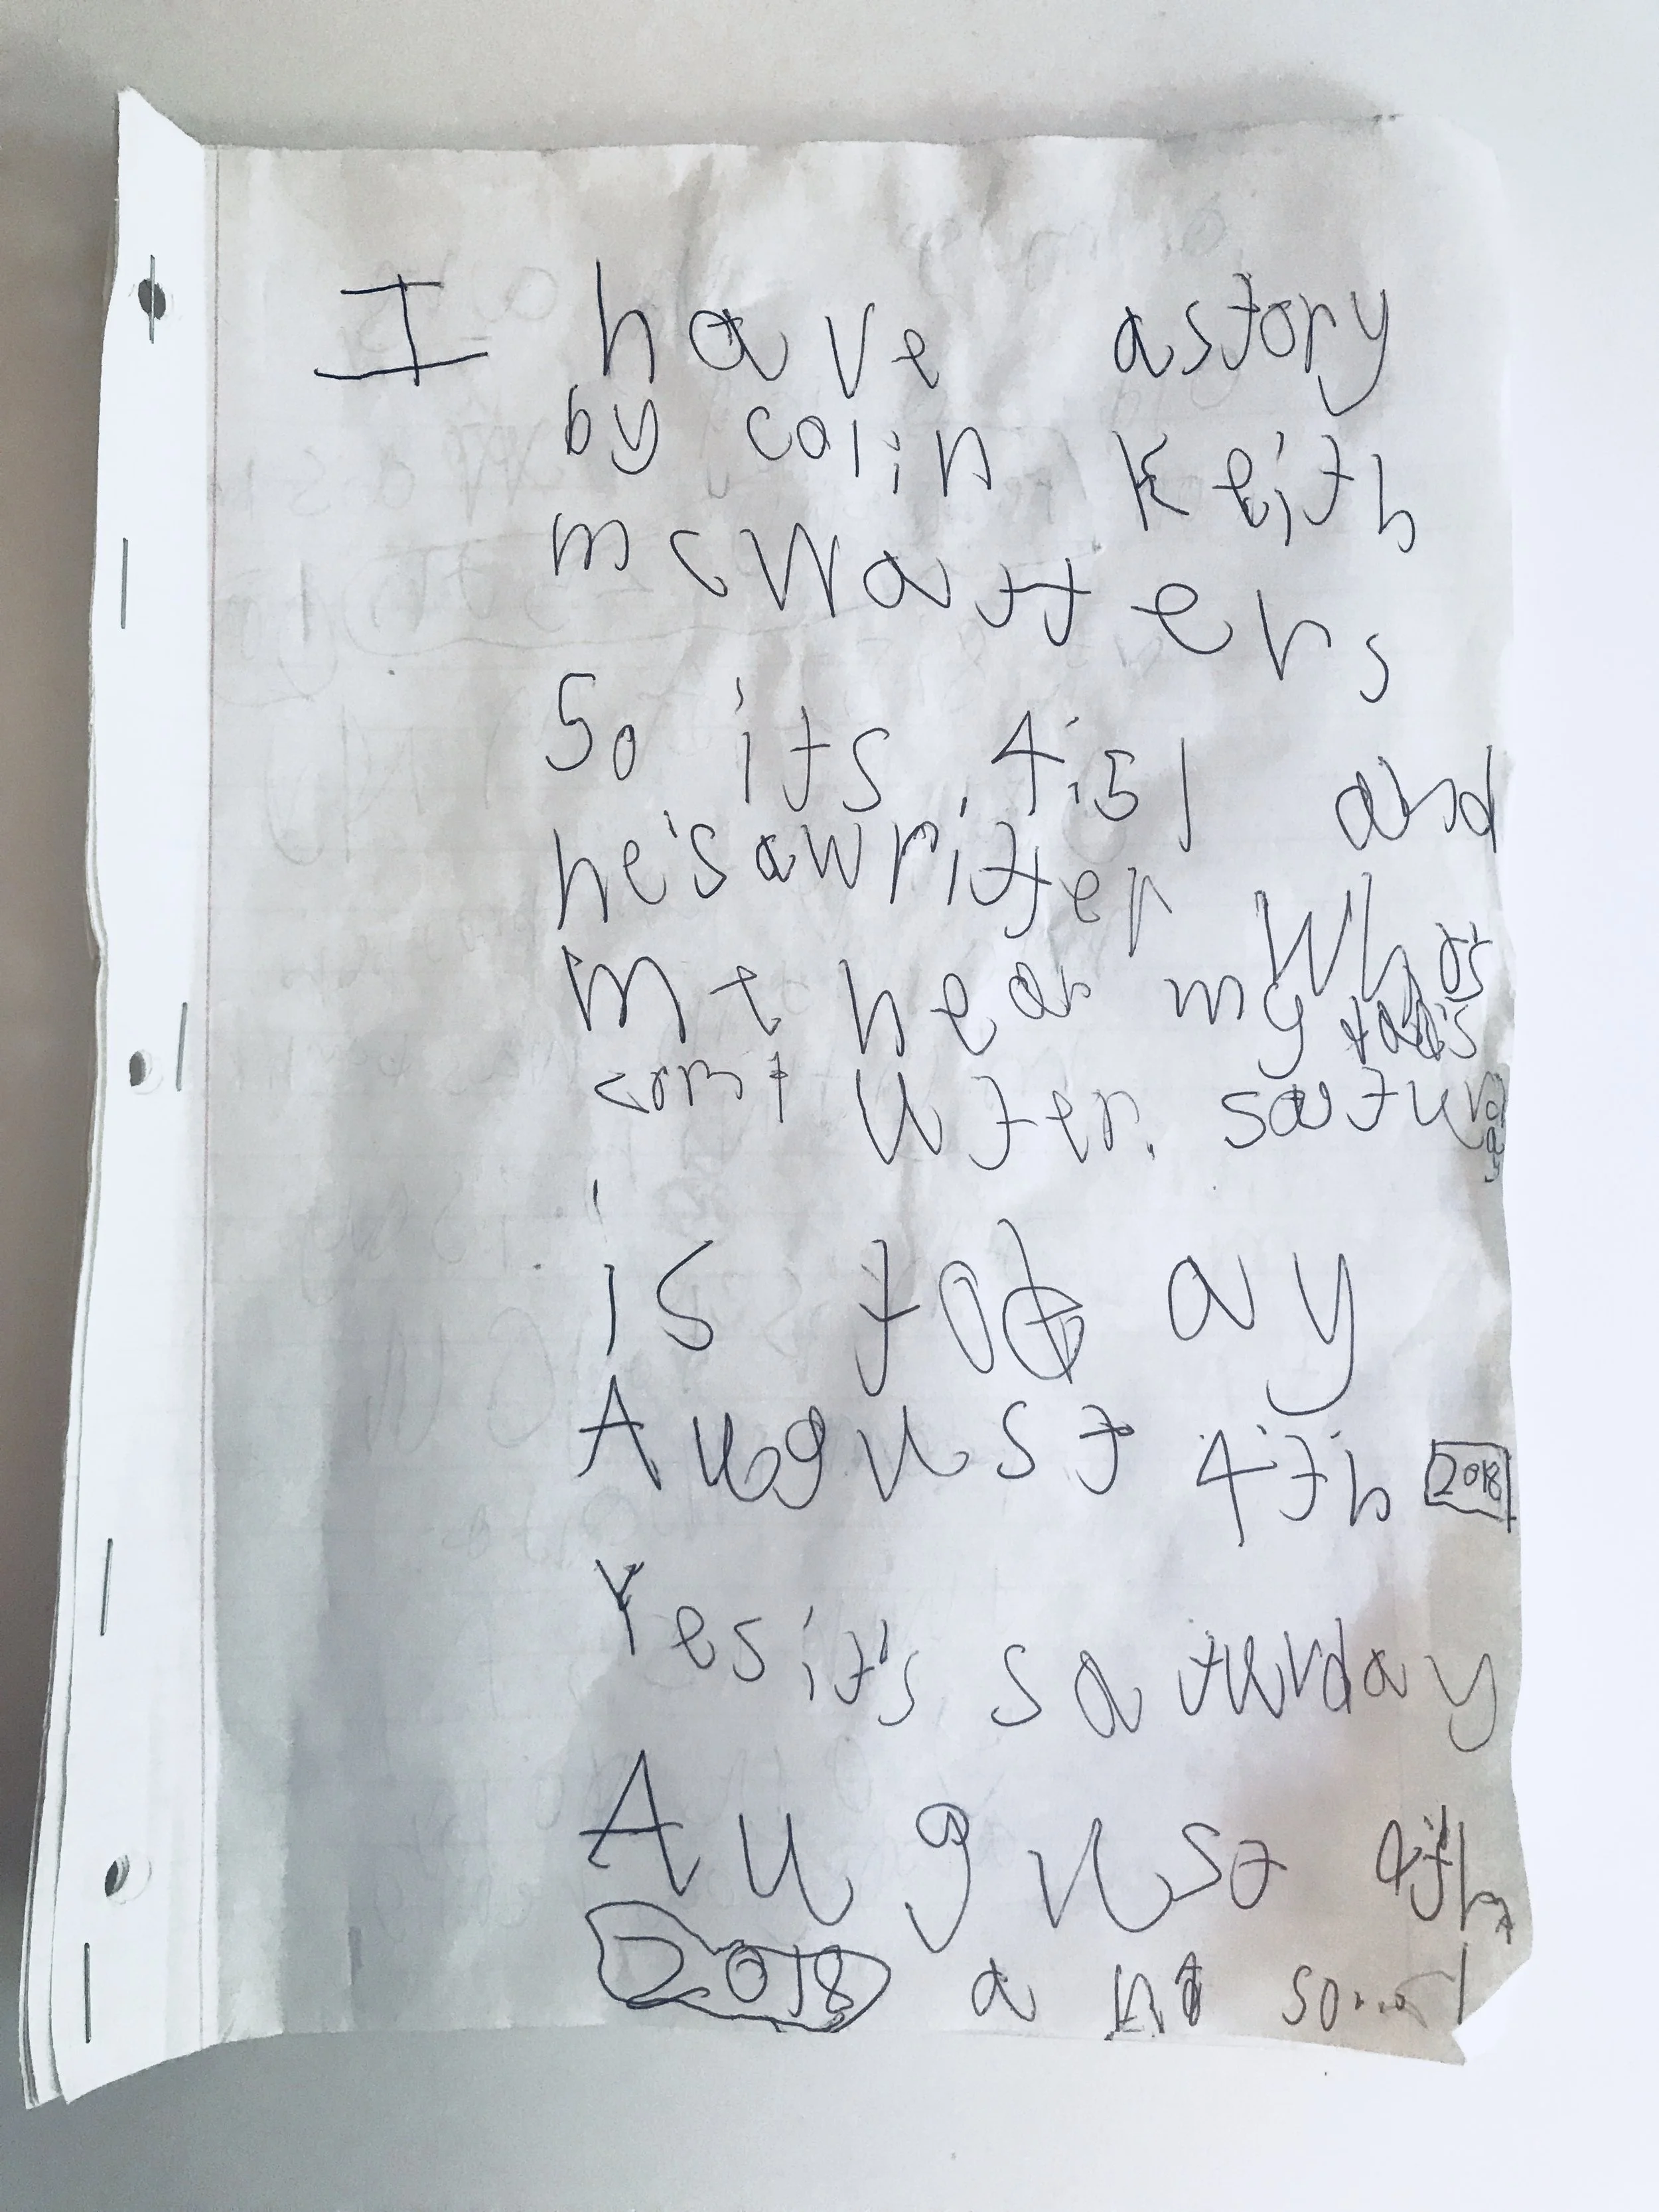 I have astory
by colin Keith
mcWatters
So its 4:51 and
he's awritter
me near my
computer. saturday
is today
August 4th 2018
Yes it's saturday
August 4th,
2018 a so....